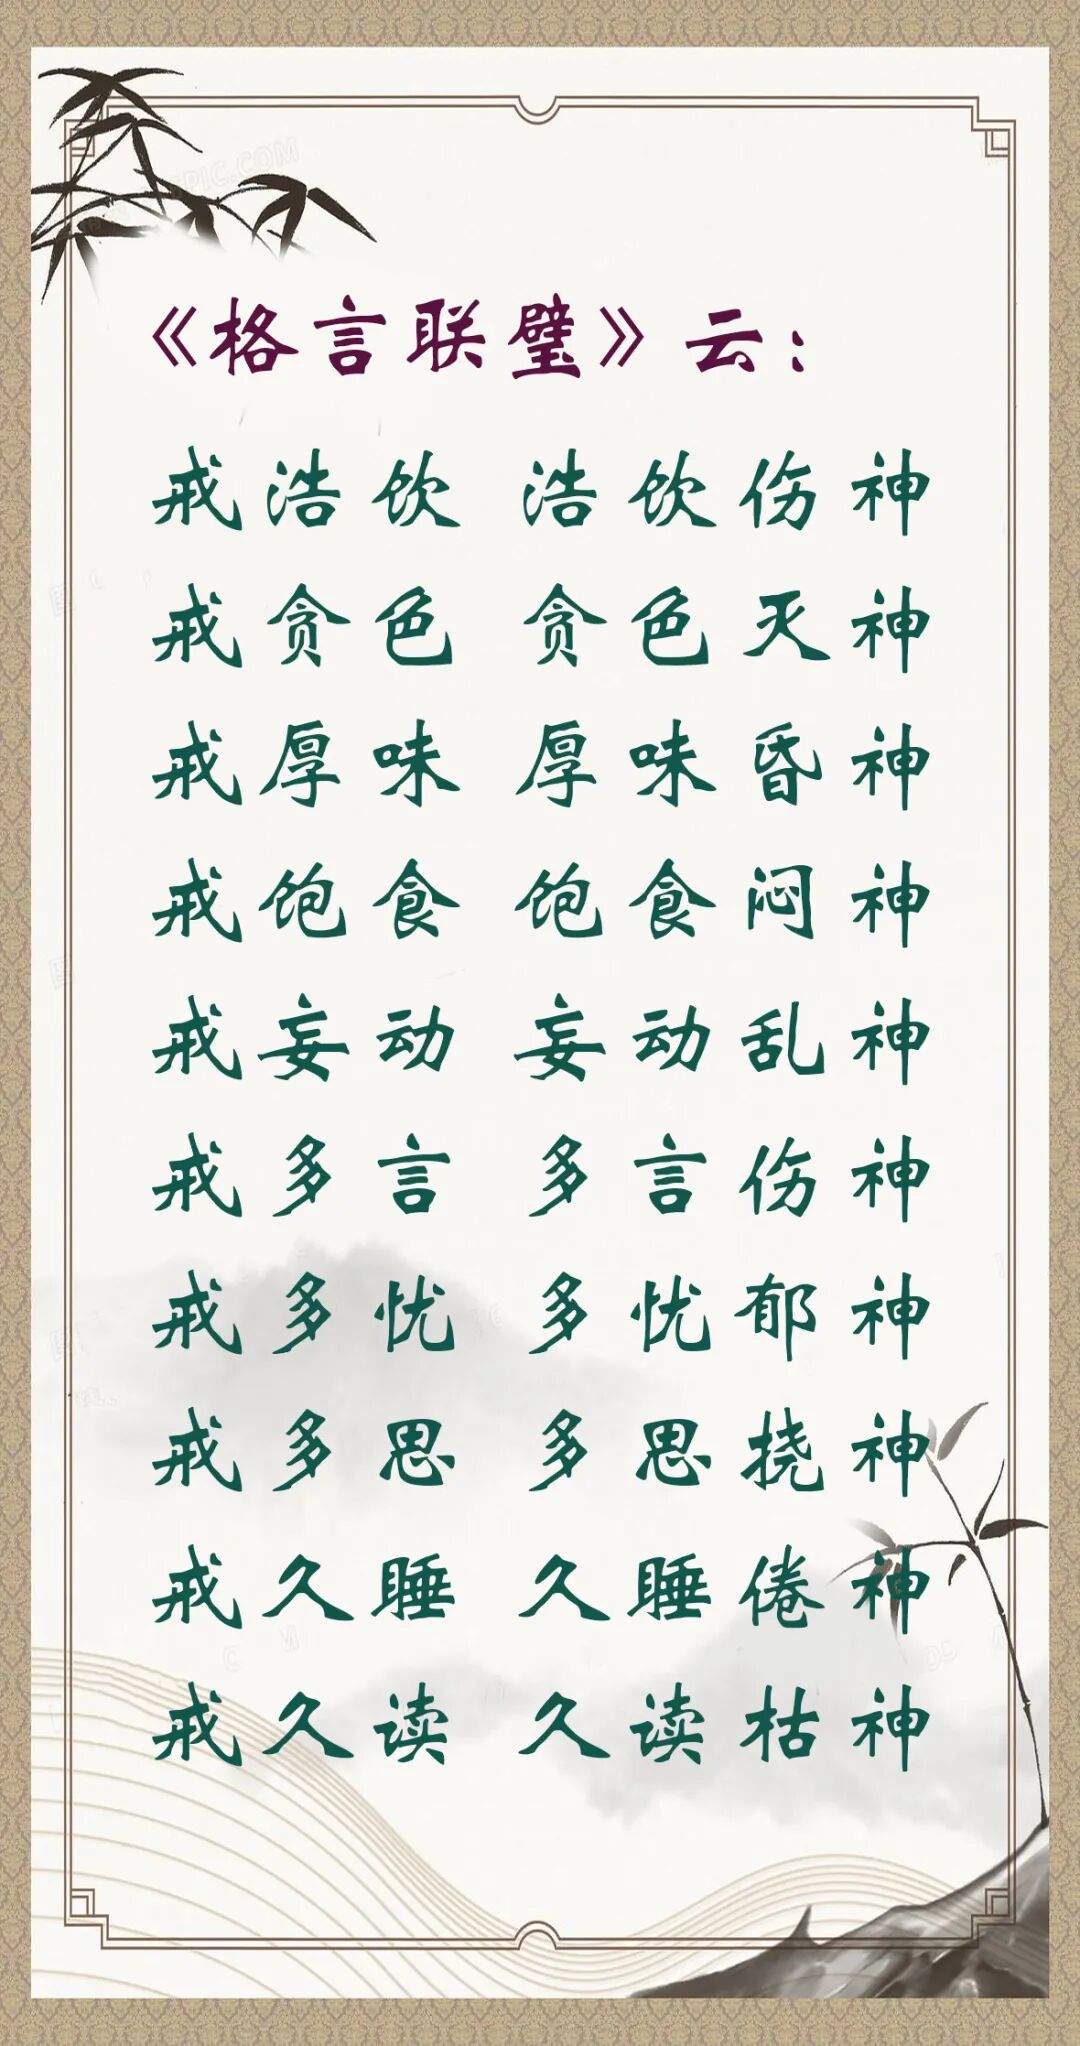 《格言联璧》云：
戒浩饮 浩饮伤神
戒贪色 贪色灭神
戒厚味 厚味昏神
戒饱食 饱食闷神
戒妄动 妄动乱神
戒多言 多言伤神
戒多忧 多忧郁神
戒多思 多思挠神
戒久睡 久睡倦神
戒久读 久读枯神